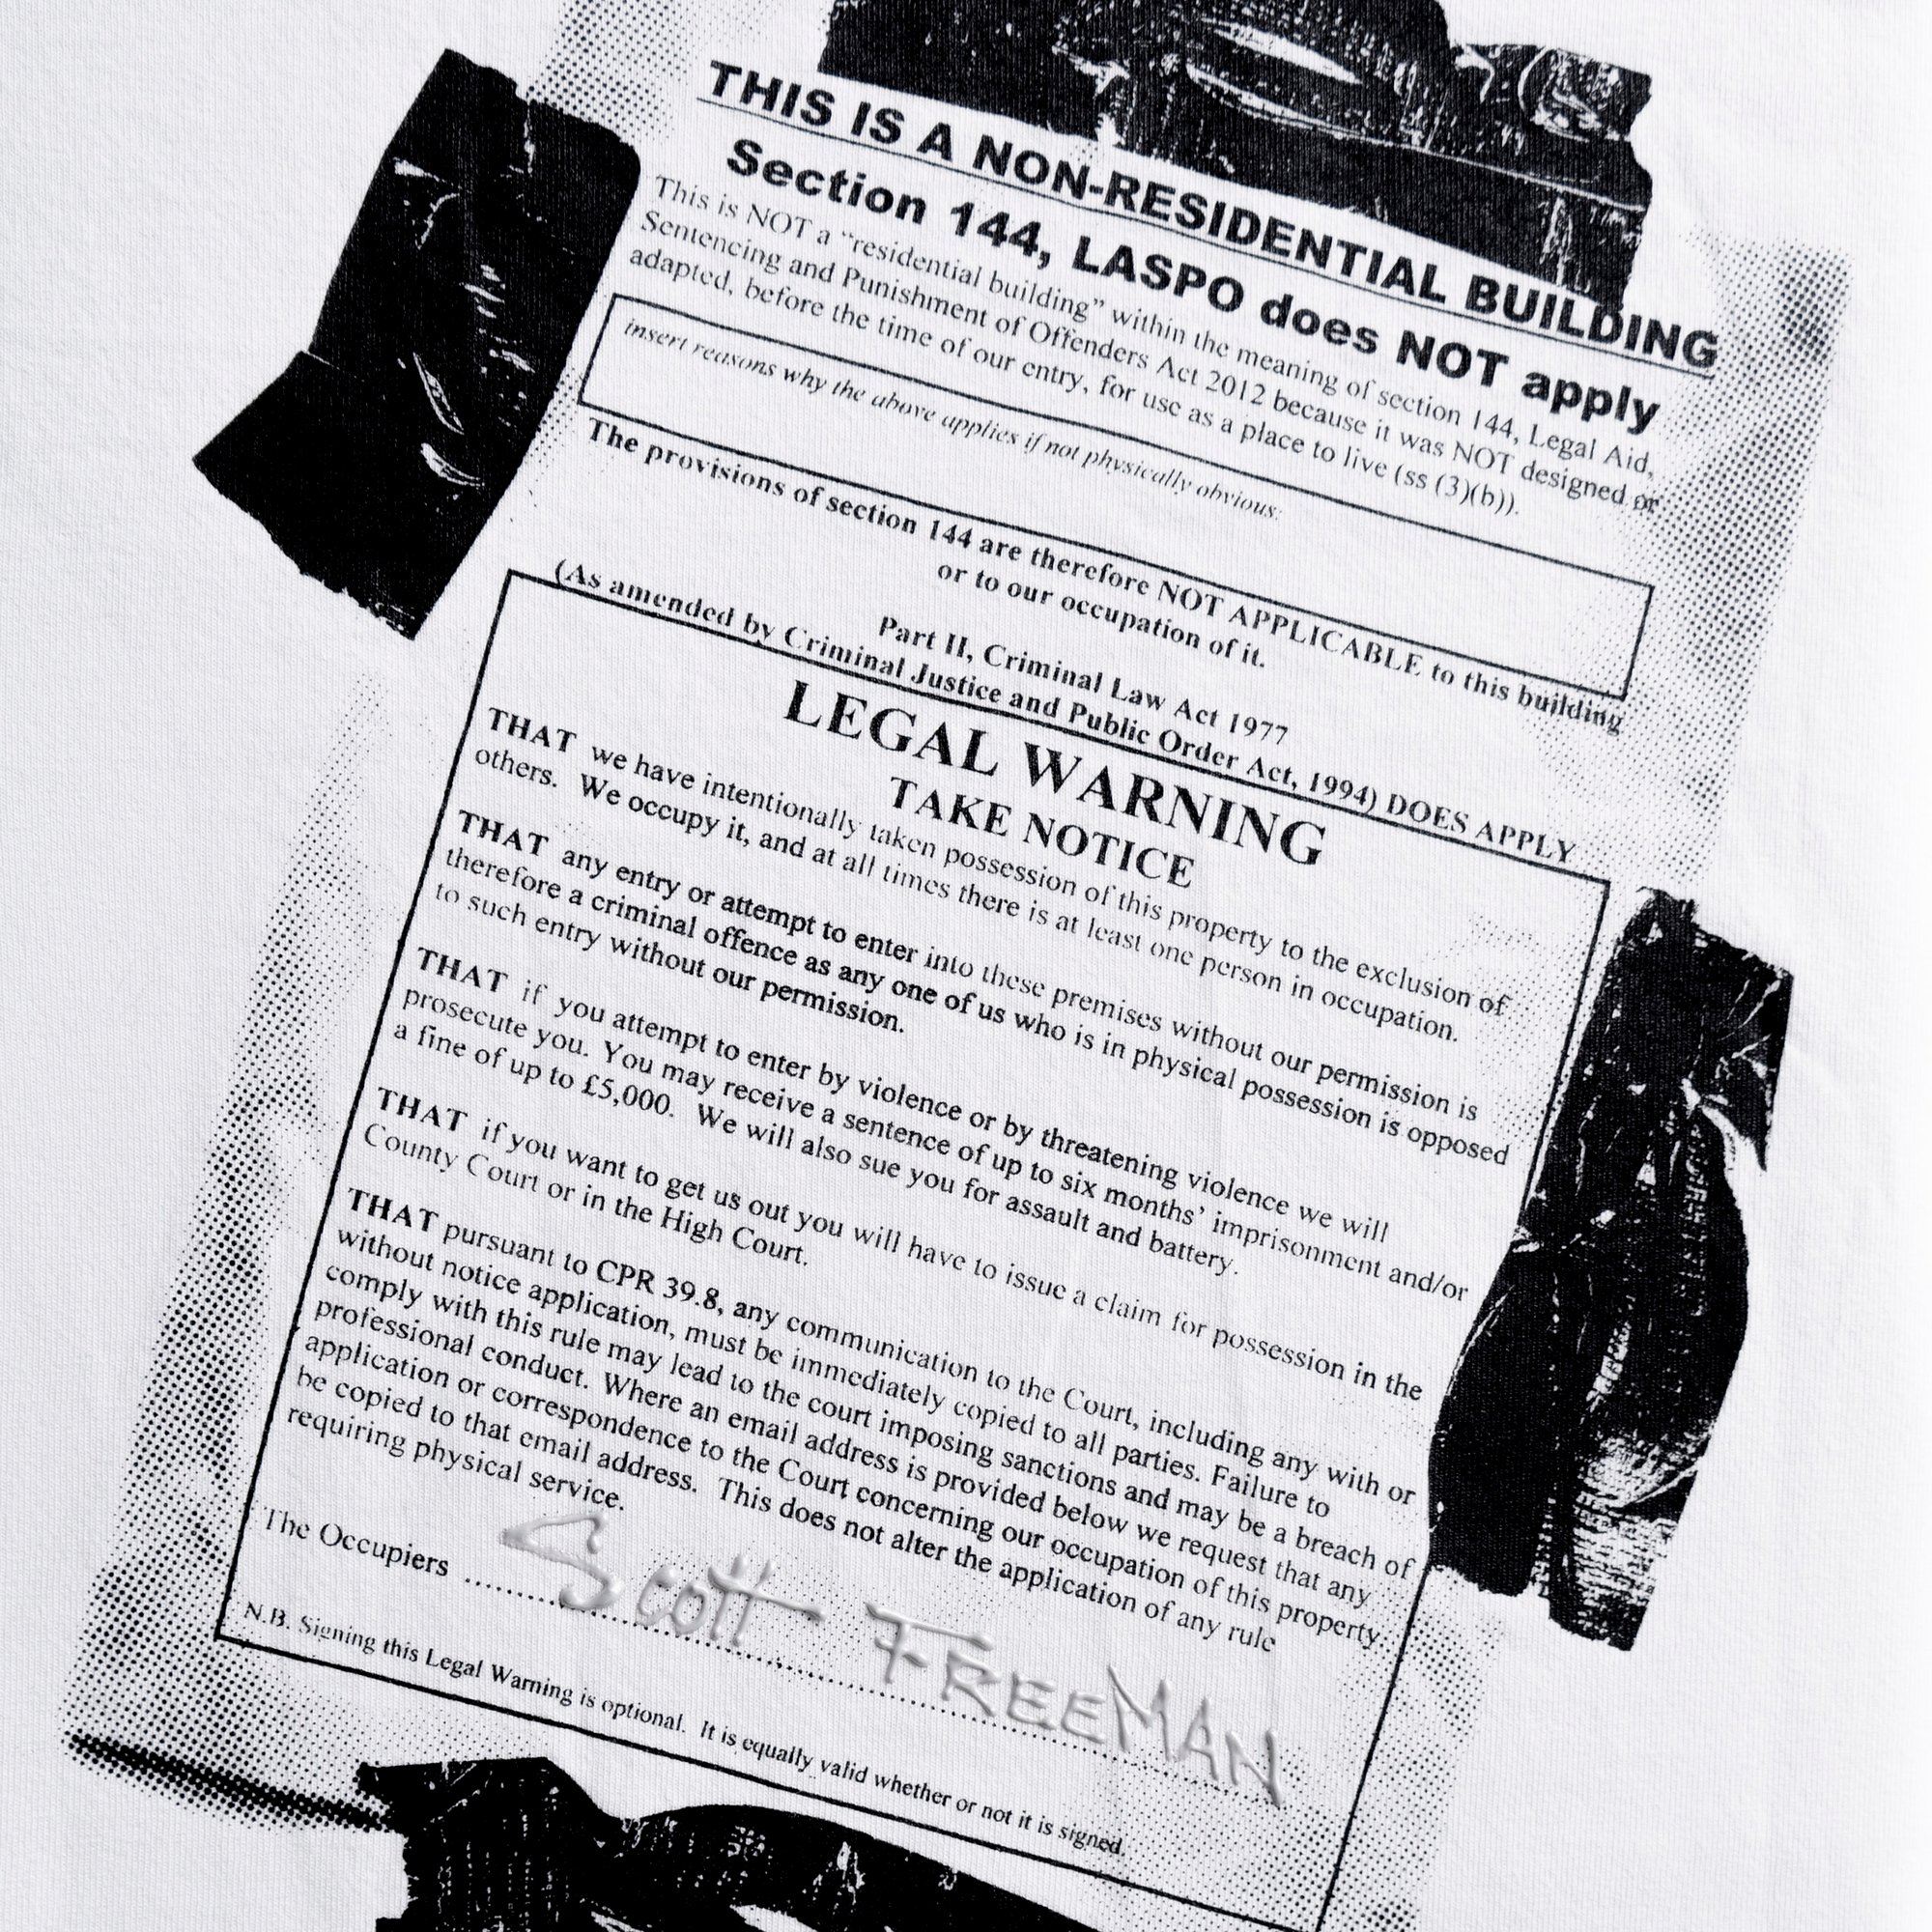 THIS IS A NON-RESIDENTIAL BUILDING
Section 144, LASPO does NOT apply
This is NOT a “residential building” within the meaning of section 144, Legal Aid,
Sentencing and Punishment of Offenders Act 2012 because it was NOT designed or
adapted, before the time of our entry, for use as a place to live (ss (3)(b)).
insert reasons why the above applies if not physically obvious:
The provisions of section 144 are therefore NOT APPLICABLE to this building
or to our occupation of it.
Part II, Criminal Law Act 1977
(As amended by Criminal Justice and Public Order Act, 1994) DOES APPLY
LEGAL WARNING
TAKE NOTICE
THAT we have intentionally taken possession of this property to the exclusion of
others. We occupy it, and at all times there is at least one person in occupation.
THAT any entry or attempt to enter into these premises without our permission is
therefore a criminal offence as any one of us who is in physical possession is opposed
to such entry without our permission.
THAT if you attempt to enter by violence or by threatening violence we will
prosecute you. You may receive a sentence of up to six months’ imprisonment and/or
a fine of up to £5,000. We will also sue you for assault and battery.
THAT if you want to get us out you will have to issue a claim for possession in the
County Court or in the High Court.
THAT pursuant to CPR 39.8, any communication to the Court, including any with or
without notice application, must be immediately copied to all parties. Failure to
comply with this rule may lead to the court imposing sanctions and may be a breach of
professional conduct. Where an email address is provided below we request that any
application or correspondence to the Court concerning our occupation of this property
be copied to that email address. This does not alter the application of any rule
requiring physical service.
The Occupiers Scott FREEMAN
N.B. Signing this Legal Warning is optional. It is equally valid whether or not it is signed.